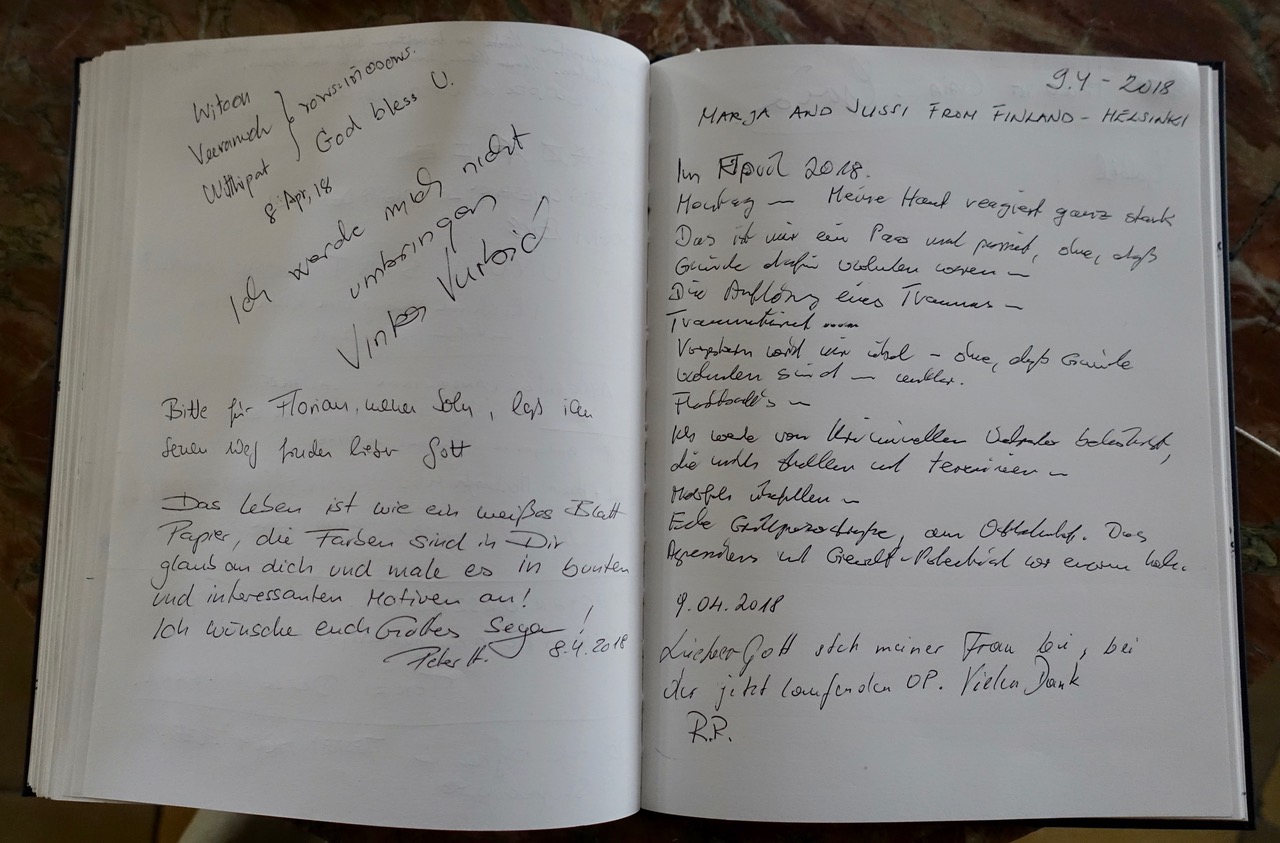 Witoon
Veeranuch
Witthipat
God bless U.
8 Apr, 18
Ich werde mich nicht
umbringen
Bitte für Florian, meinen Sohn, laß ihn
seinen Weg finden lieber Gott
Das Leben ist wie ein weißes Blatt
Papier, die Farben sind in Dir
glaub an dich und male es in bunten
und interessanten Motiven an!
Ich wünsche euch Gottes Segen!
Peter H. 8.4.2018
9.4 - 2018
MARJA AND JUSSI FROM FINLAND - HELSINKI
Im April 2018.
Montag — Meine Haut reagiert ganz stark
Das ist mir ein Paar mal passiert, ohne, daß
Gründe dafür vorhanden waren —
Die Auflösung eines Traumas —
wird mir übel — ohne, daß Gründe
vorhanden sind —
Flashback's —
Ich werde von Kriminellen belästigt,
die mich und —
Ecke Grillparzerstraße, am Ostbahnhof. Das
Aggressions und Gewalt-Potential
9.04.2018
Lieber Gott steh meiner Frau bei, bei
der jetzt laufenden OP. Vielen Dank
R.P.